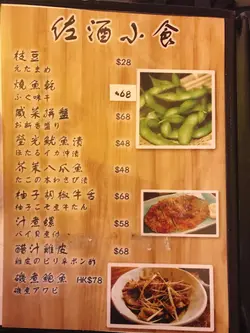 佐酒小食
枝豆 $28
えだまめ
燒魚乾 $68
ふぐ味干
鹹菜拼盤 $68
お新香盛り
螢光魷魚漬 $48
ほたるイカ沖漬
芥菜八爪魚 $48
たこの本わさび漬
柚子胡椒牛舌 $68
柚子こそ煮牛たん
汁煮螺 $58
バイ貝煮付
醋汁雞皮 $68
雞皮のピリ辛ポン酢
磯煮鮑魚 HK$78
磯煮アワビ